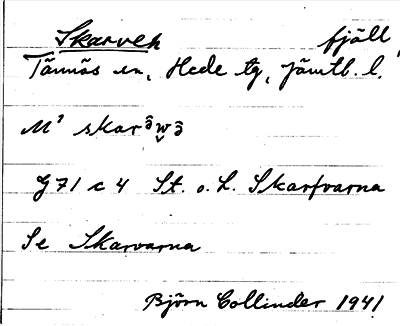 Skarveh fjäll
Tännäs sn, Hede tg, Jämtl. l.
M² skarə̑w̬ə̑
G 71 c 4 St. o. L. Skarfvarna
Se Skarvarna
Björn Collinder 1941